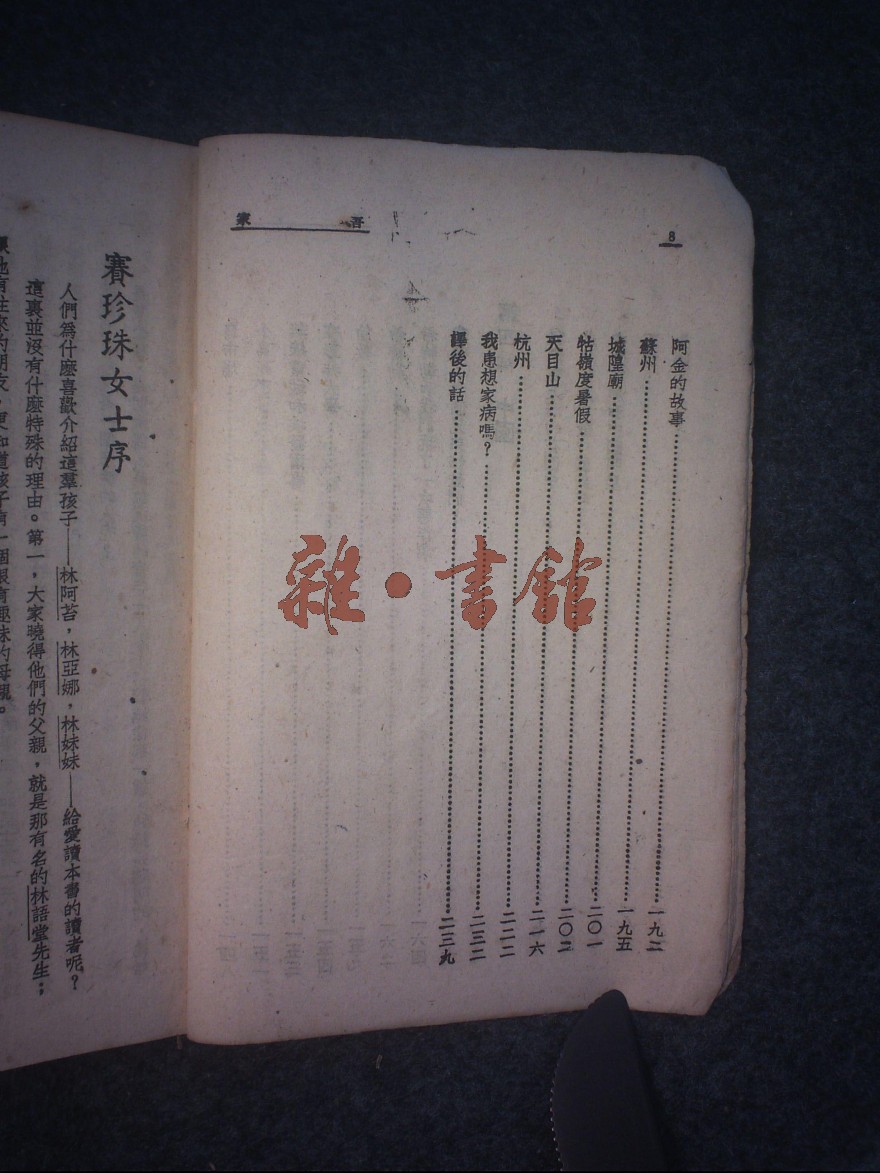 8
吾家
阿金的故事……一九二
蘇州……一九五
城隍廟……二〇一
牯嶺度暑假……二〇二
天目山……二一六
杭州……二二二
我患想家病嗎？……二三二
譯後的話……二三九
雜·書館
賽珍珠女士序
人們為什麼喜歡介紹這羣孩子——林阿苔，林亞娜，林妹妹——給愛讀本書的讀者呢？
這裏並沒有什麼特殊的理由。第一，大家曉得他們的父親，就是那有名的林語堂先生；
有往來的朋友，更知道孩子有一個很有趣味的母親。